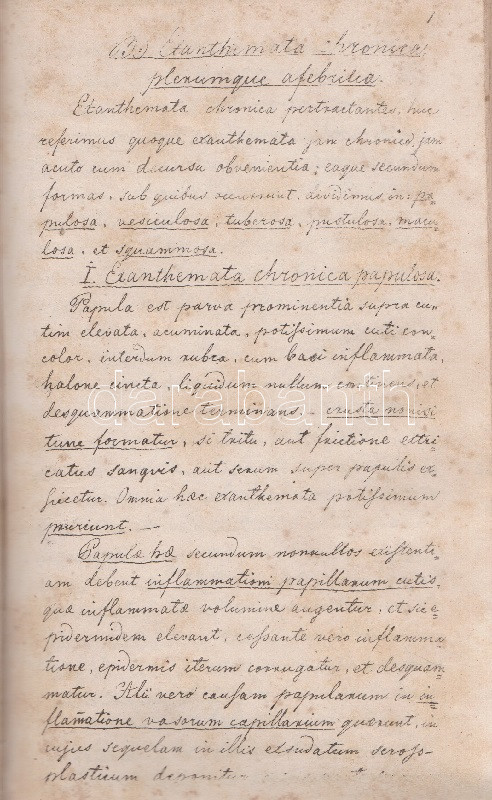 1
B.) Exanthemata chronica
plerumque afebrilia.
Exanthemata chronica pertractantes, huc
referimus quoque exanthemata jam chronico, jam
acuto cum decursu obvenientia; eaque secundum
formas, sub quibus occurrunt, dividimus, in: pa-
pulosa, vesiculosa, tuberosa, pustulosa, macu-
losa, et squammosa.
I. Exanthemata chronica papulosa.
Papula est parva prominentia supra cu-
tim elevata, acuminata, potissimum cuti con-
color, interdum rubra, cum basi inflammata,
halone cincta, liquidum nullum continens, et
desquammatione terminans. - crusta nonnisi
tunc formatur, si tritu, aut frictione ettri-
catus sangvis, aut serum super papulis ex-
siccetur. Omnia hæc exanthemata potissimum
pruriunt. —
Papulæ hæ secundum nonnullos existenti-
am debent inflammationi papillarum cutis,
quæ inflammatæ volumine augentur, et sic e-
pidermidem elevant, cessante vero inflamma-
tione, epidermis iterum corrugatur, et desquam-
matur. Alii vero causam papularum in in-
flammatione vasorum capillarium quærunt, in
cujus sequelam in illis exsudatum seroso-
plasticum
darabanth